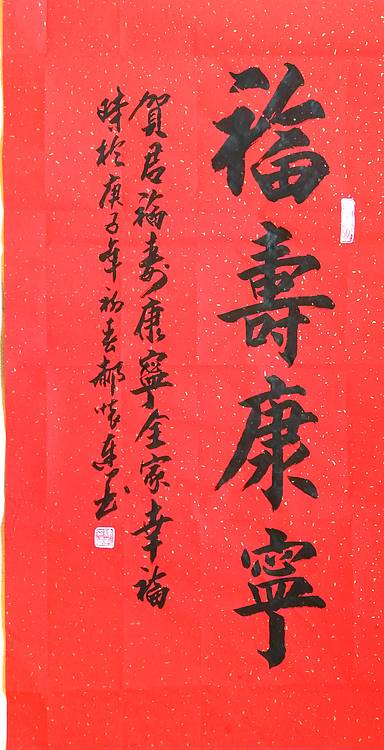 福壽康寧
賀君福壽康寧全家幸福
時於庚子年初春郝懷東書